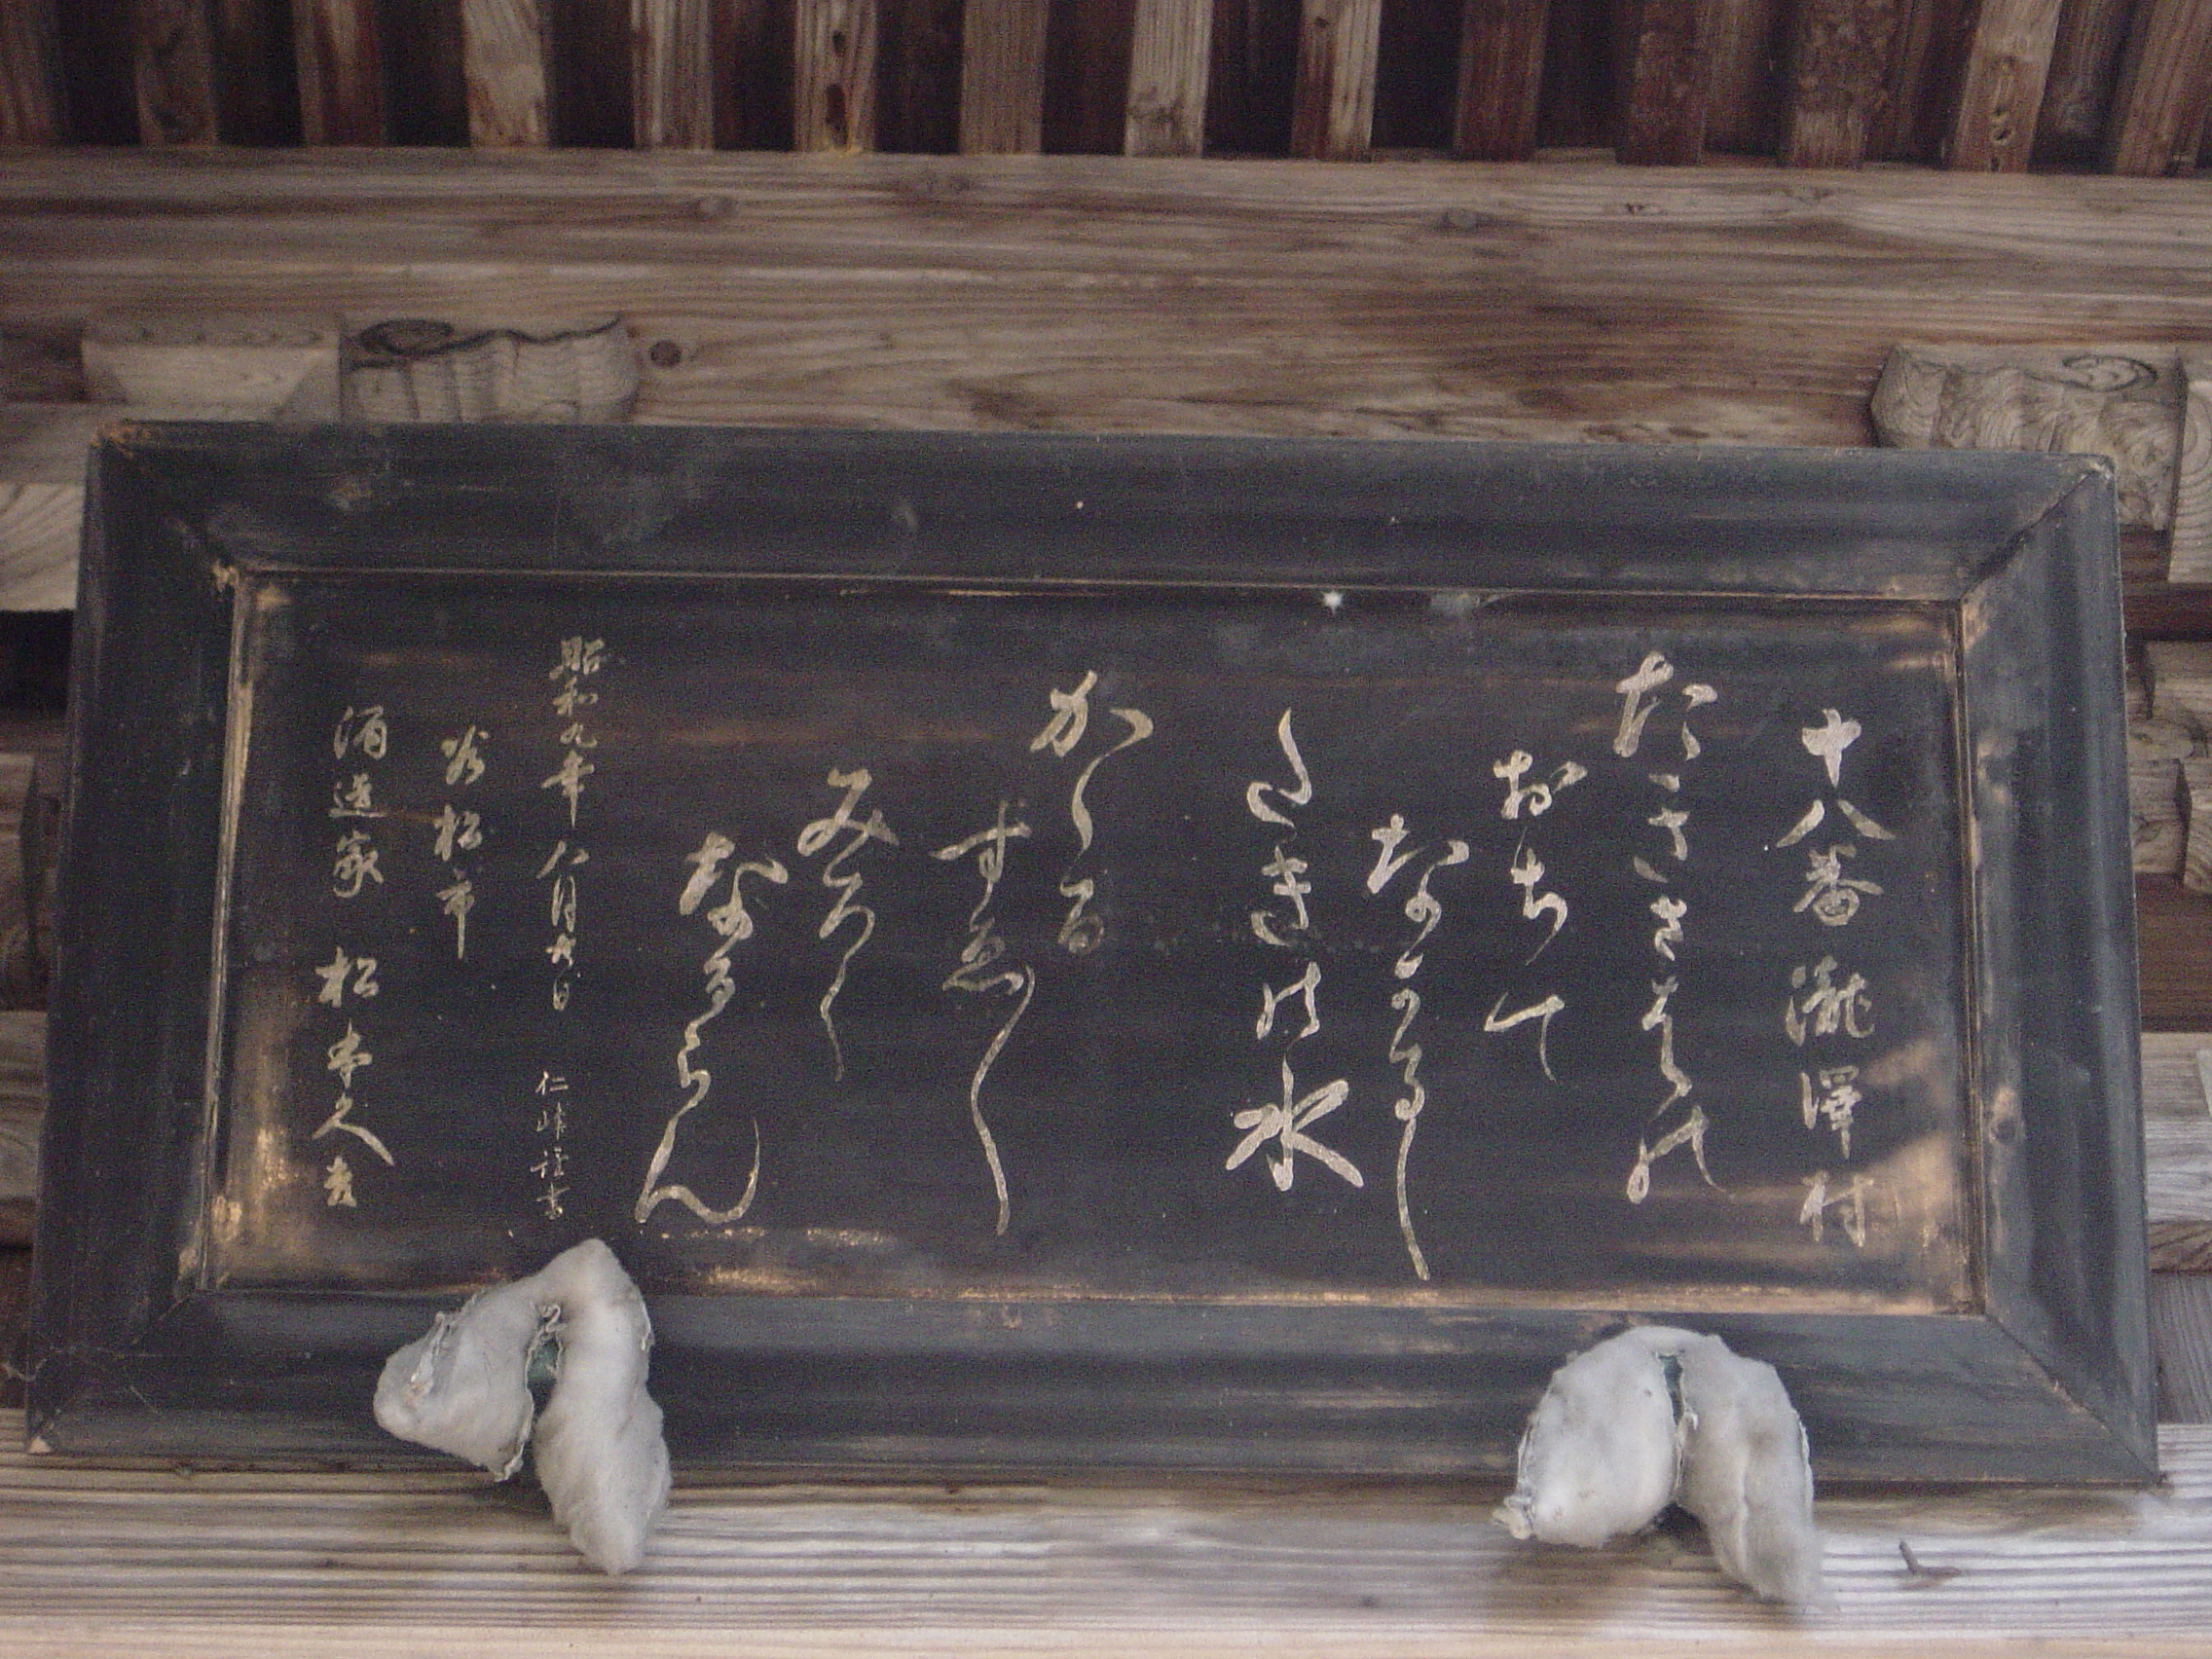 十八番 瀧澤村
たきさはの
おちて
なかるゝ
たきの水
かゝる
すゑ
みつく
なるらん
昭和九年八月大日 仁峰謹書
若松市
酒造家 松本久吉